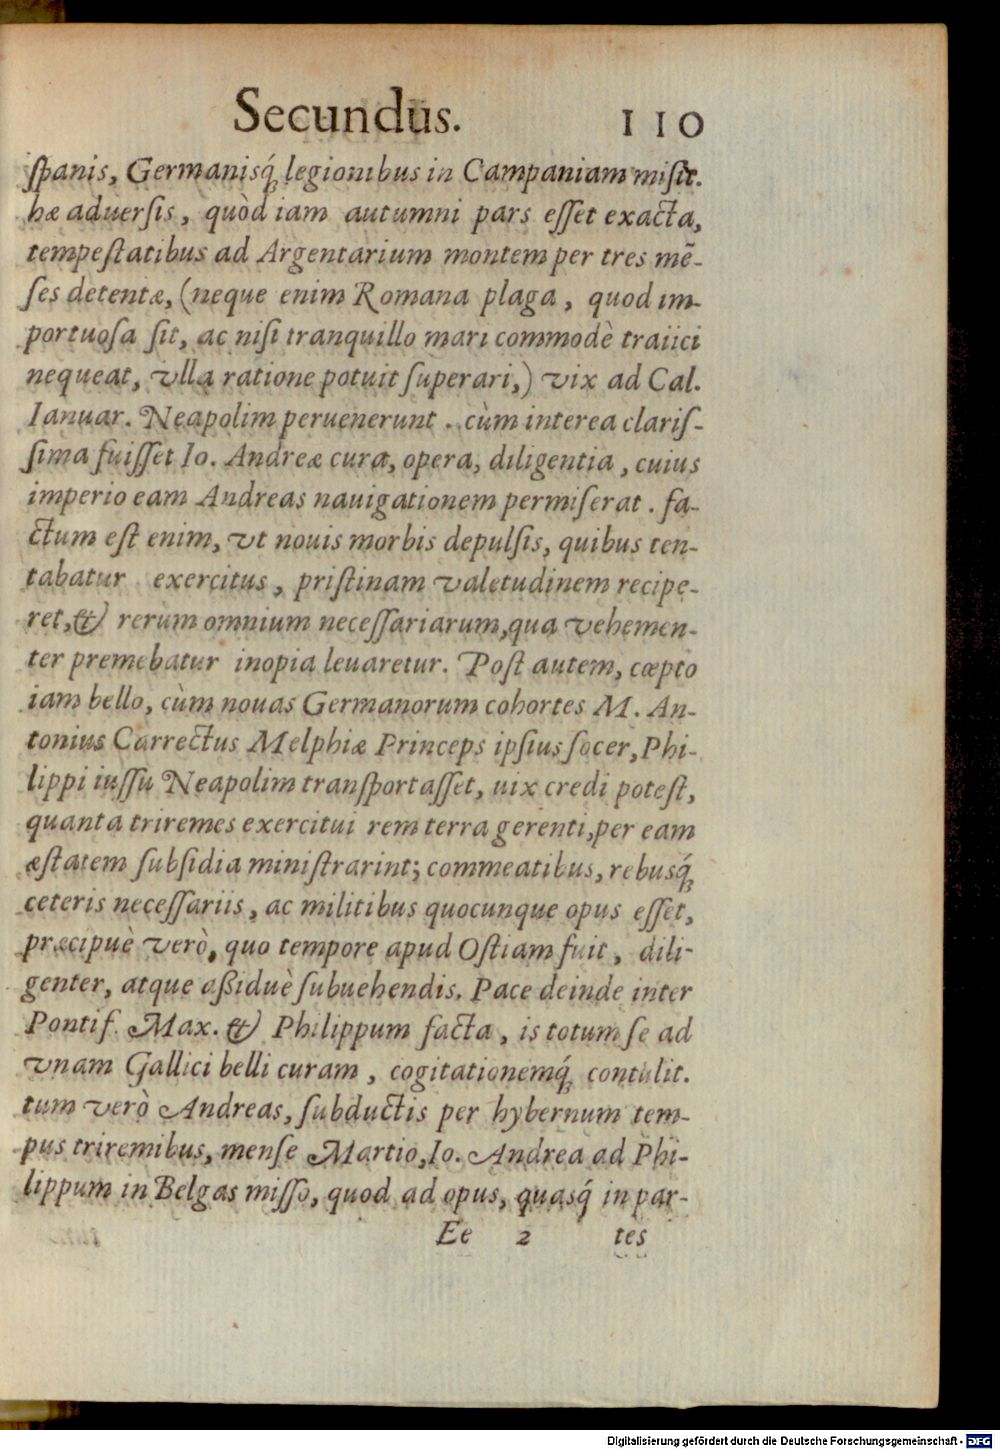 Secundus. 110
spanis, Germanisq́; legionibus in Campaniam misit.
hæ aduersis, quòd iam autumni pars esset exacta,
tempestatibus ad Argentarium montem per tres mē-
ses detentæ, (neque enim Romana plaga, quod im-
portuosa sit, ac nisi tranquillo mari commodè traiici
nequeat, vlla ratione potuit superari,) vix ad Cal.
Ianuar. Neapolim peruenerunt. cùm interea claris-
sima fuisset Io. Andreæ cura, opera, diligentia, cuius
imperio eam Andreas nauigationem permiserat. fa-
ctum est enim, vt nouis morbis depulsis, quibus ten-
tabatur exercitus, pristinam valetudinem recipe-
ret, & rerum omnium necessariarum, qua vehemen-
ter premebatur inopia leuaretur. Post autem, cœpto
iam bello, cùm nouas Germanorum cohortes M. An-
tonius Carrectus Melphiæ Princeps ipsius socer, Phi-
lippi iussu Neapolim transportasset, uix credi potest,
quanta triremes exercitui rem terra gerenti, per eam
æstatem subsidia ministrarint; commeatibus, rebusq́;
ceteris necessariis, ac militibus quocunque opus esset,
præcipuè verò, quo tempore apud Ostiam fuit, dili-
genter, atque aßiduè subuehendis. Pace deinde inter
Pontif. Max. & Philippum facta, is totum se ad
vnam Gallici belli curam, cogitationemq́; contulit.
tum verò Andreas, subductis per hybernum tem-
pus triremibus, mense Martio, Io. Andrea ad Phi-
lippum in Belgas misso, quod ad opus, quasq́; in par-
Ee 2 tes
Digitalisierung gefördert durch die Deutsche Forschungsgemeinschaft - DFG